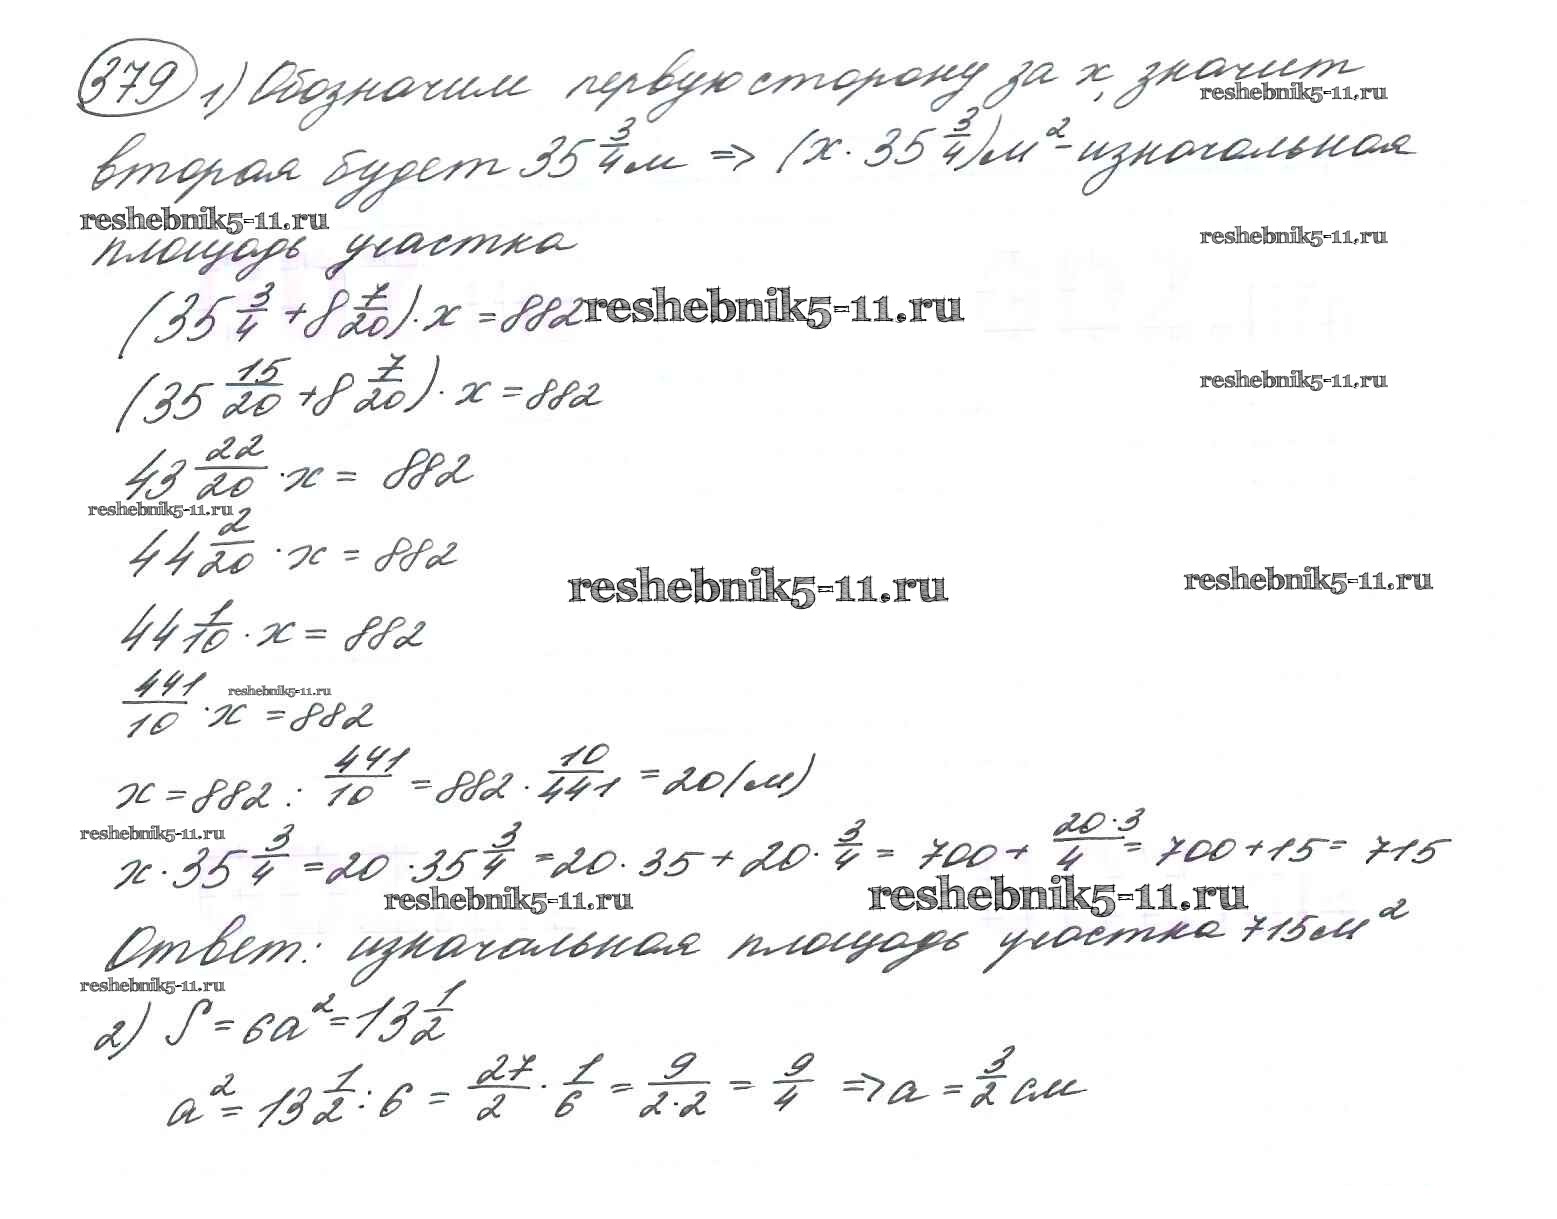 379 1) Обозначим первую сторону за x, значит
reshebnik5-11.ru
вторая будет 35 3/4 м => (x · 35 3/4) м² - изначальная
reshebnik5-11.ru
площадь участка
reshebnik5-11.ru
(35 3/4 + 8 7/20) · x = 882
reshebnik5-11.ru
(35 15/20 + 8 7/20) · x = 882
reshebnik5-11.ru
43 22/20 · x = 882
reshebnik5-11.ru
44 2/20 · x = 882
reshebnik5-11.ru
reshebnik5-11.ru
44 1/10 · x = 882
reshebnik5-11.ru
441/10 · x = 882
x = 882 : 441/10 = 882 · 10/441 = 20 (м)
reshebnik5-11.ru
x · 35 3/4 = 20 · 35 3/4 = 20 · 35 + 20 · 3/4 = 700 + 20·3/4 = 700 + 15 = 715
reshebnik5-11.ru
reshebnik5-11.ru
Ответ: изначальная площадь участка 715 м²
reshebnik5-11.ru
2) S = 6a² = 13 1/2
a² = 13 1/2 : 6 = 27/2 · 1/6 = 9/2·2 = 9/4 => a = 3/2 см